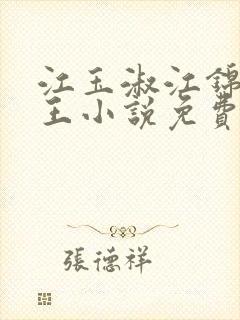 江玉淑江锦
王小説免費
張德祥